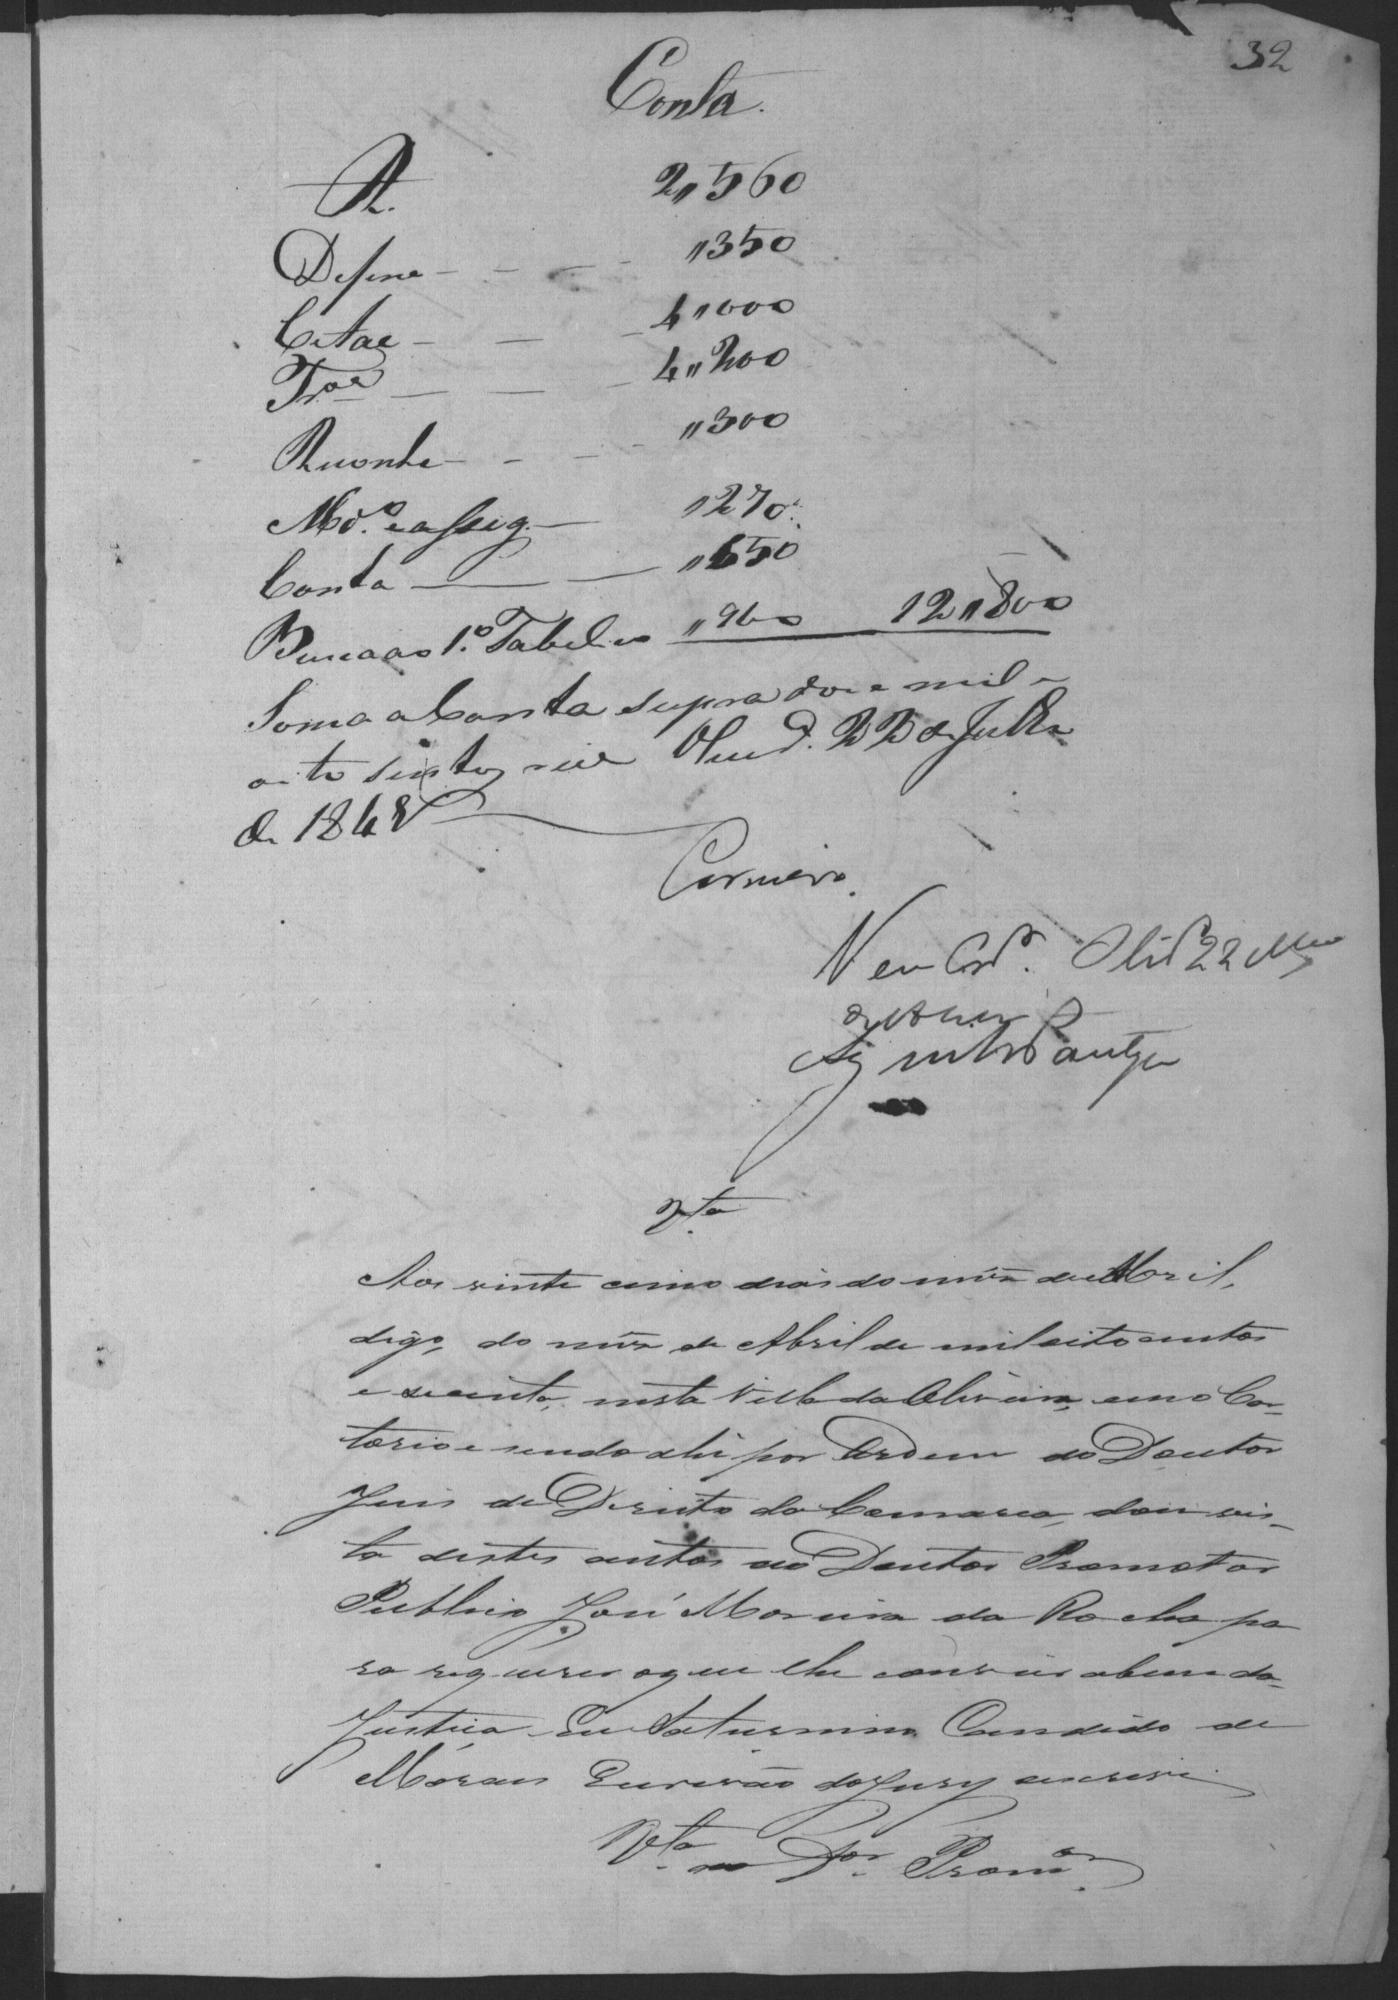 32
Conta.
A. 2,,560
Defeza - - - - ,,350
Citaç - - - 4,,000
Tras - - - 4,,200
Ruonha - - - ,,300
Md.º e assig. - ,,270
Conta - - ,,650
Busca ao 1.º Tabelião ,,960 12,,800
Soma a Conta supra doze mil e
oito sentos reis 22 de Julho
de 1848
Carneiro.
V em Cor. 22
Vta
Aos vinte cinco dias do mez de Abril,
digo, do mez de Abril de mil oito centos
e secenta, nesta Villa da Oliveira, em o Car-
torio e sendo ahi por Ordem do Doutor
Juis de Dereito da Comarca, dou vis-
ta destes autos ao Doutor Promotor
Publico José Moreira da Rocha pa
ra requerer o que lhe convier a bem da
Justiça Eu Saturnino Candido de
Moraes Escrivão do Jury escrevi
Vta ao Dor Promor